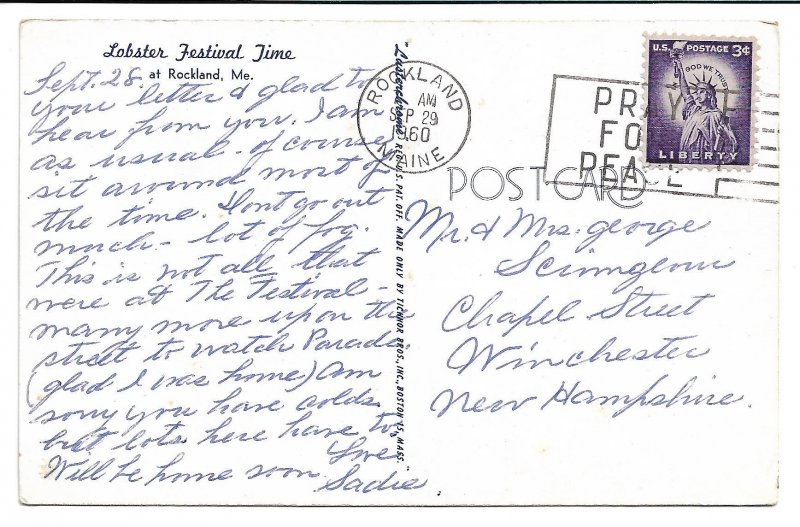 Lobster Festival Time
at Rockland, Me.
Sept. 28
your letter & glad to
hear from you. I am
as usual - of course
sit around most of
the time. Dont go out
much - lot of fog.
This is not all that
were at The Festival -
many more up on the
street to watch Parade.
(glad I was home) Am
sorry you have colds
but lots here have too
Love
Will be home soon
Sadie.
"Lusterchrome" REG. U.S. PAT. OFF. MADE ONLY BY TICHNOR BROS., INC., BOSTON 15, MASS.
ROCKLAND
AM
SEP 29
1960
MAINE
PRAY
FO
PEACE
U.S. POSTAGE 3¢
IN GOD WE TRUST
LIBERTY
POST CARD
Mr. & Mrs. George
Chapel Street
Winchester
New Hampshire.